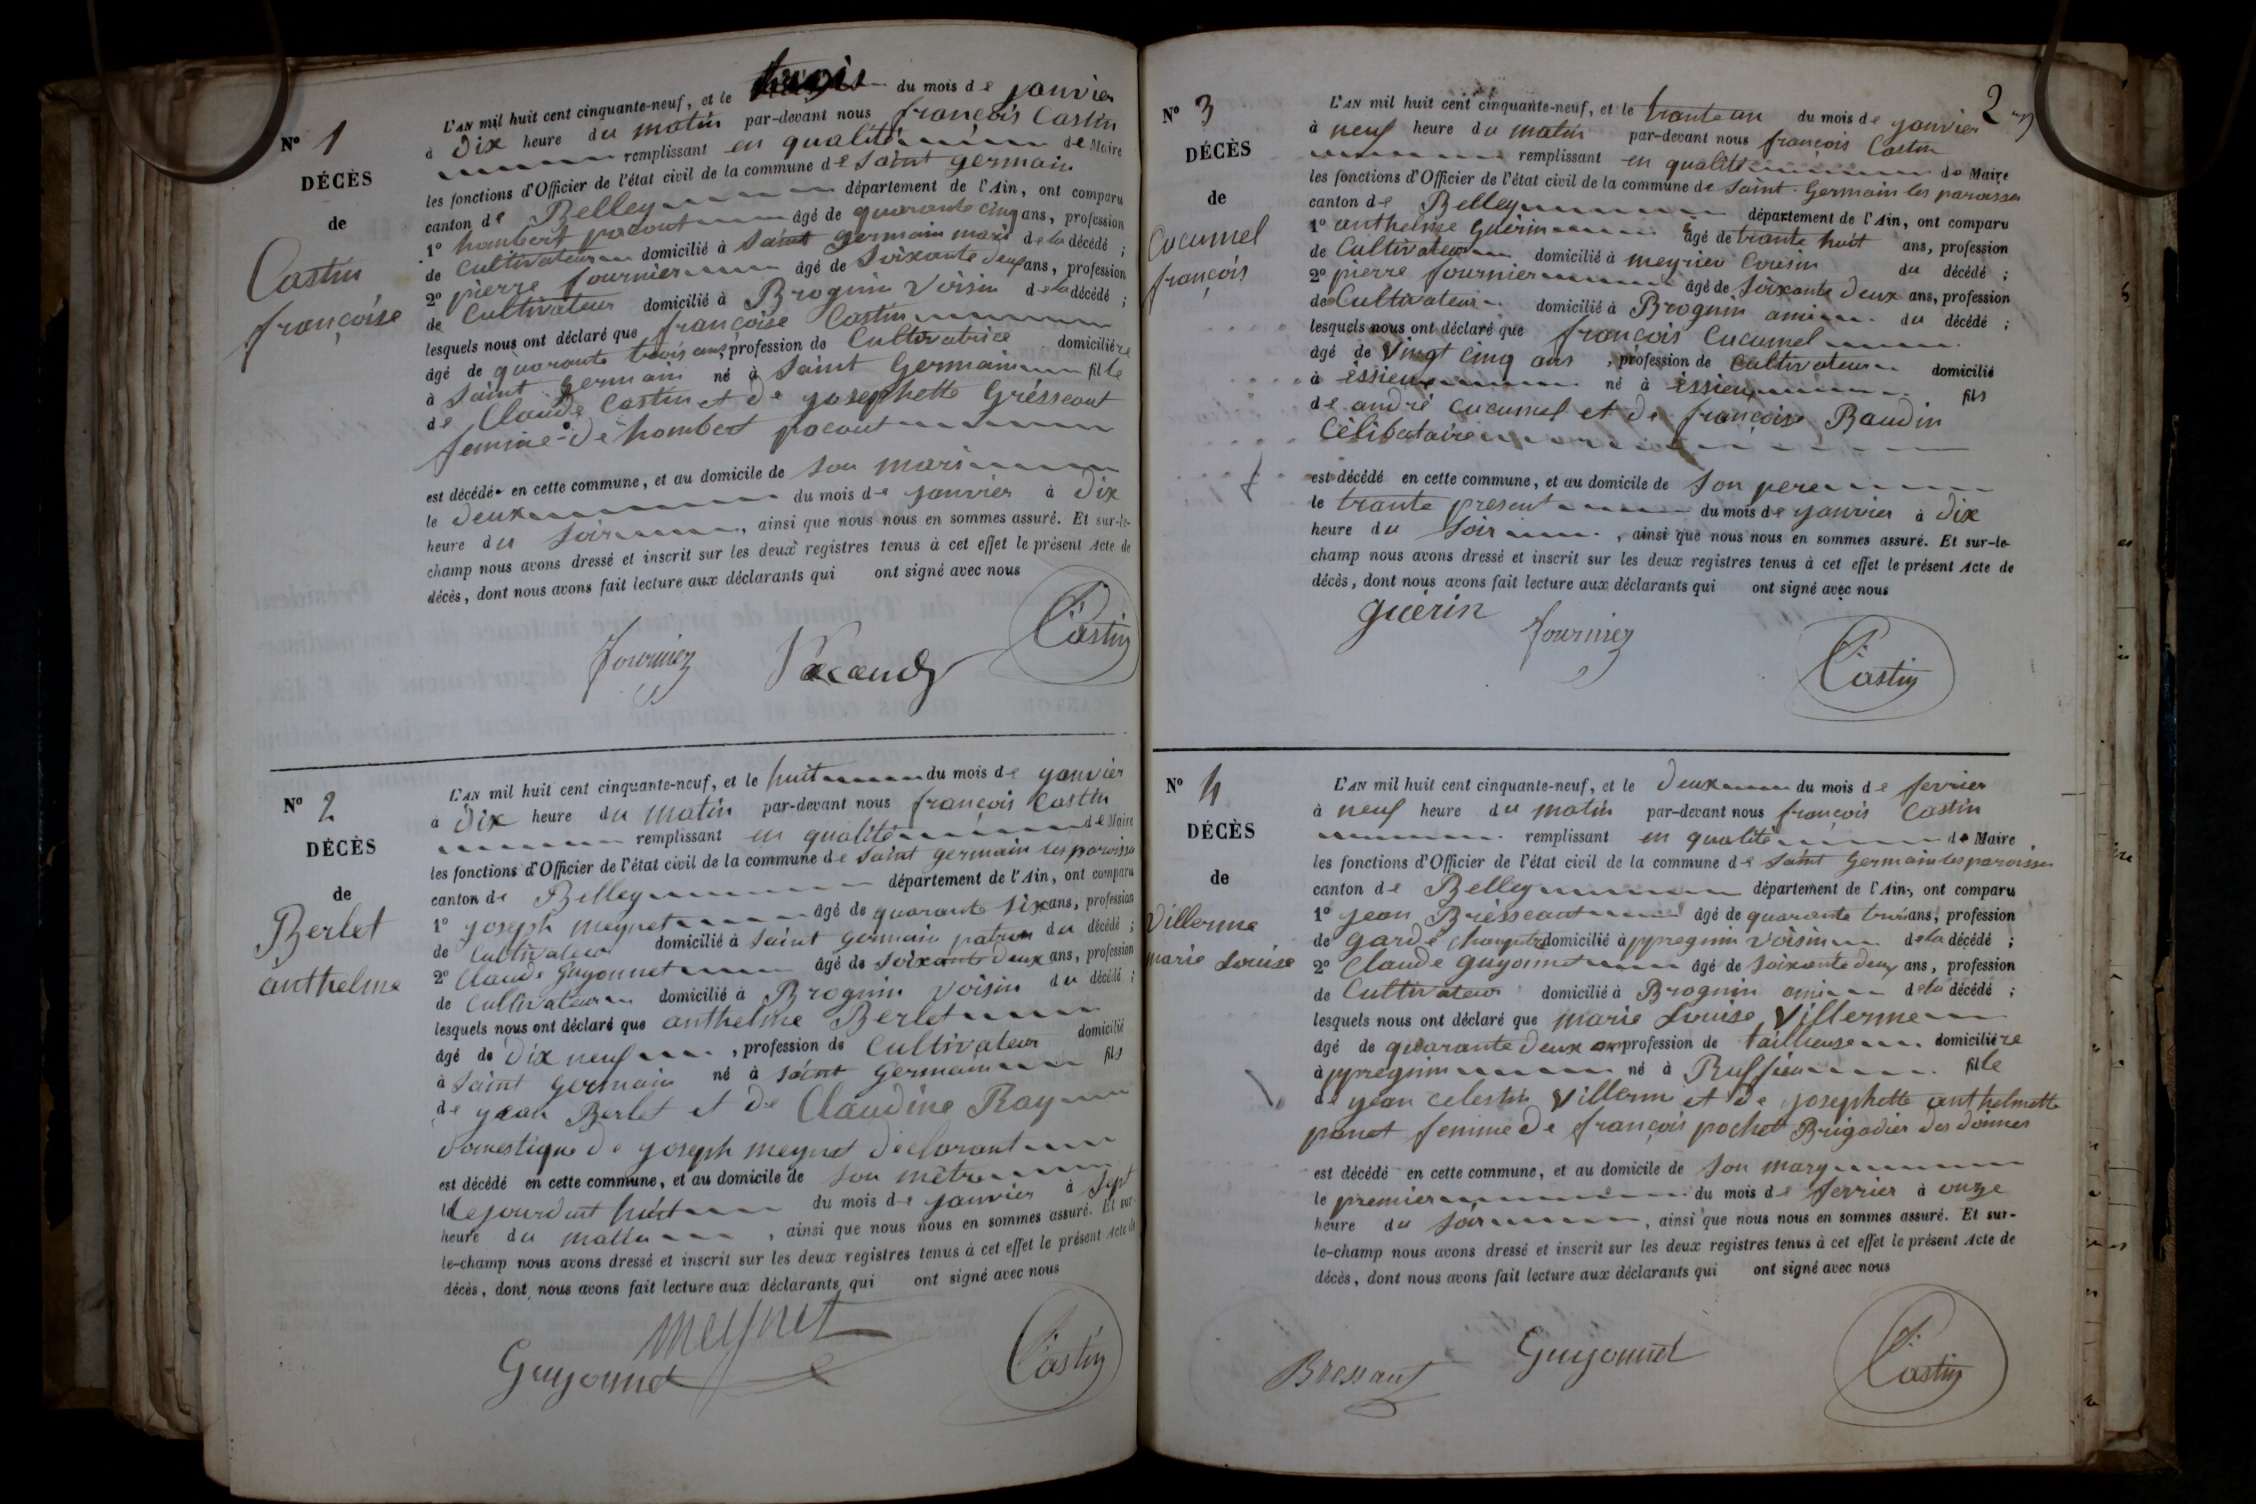 N° 1
DÉCÈS
de
Castin
françoise
L'AN mil huit cent cinquante-neuf, et le trois du mois de janvier
à dix heure du matin par-devant nous françois Castin
remplissant en qualité de Maire
les fonctions d'Officier de l'état civil de la commune de saint germain
canton de Belley département de l'Ain, ont comparu
1° humbert pacout âgé de quarante cinq ans, profession
de cultivateur domicilié à saint germain mari de la décédé ;
2° pierre fournier âgé de soixante deux ans, profession
de cultivateur domicilié à Brognin voisin de la décédé ;
lesquels nous ont déclaré que françoise Castin
âgé de quarante trois ans, profession de cultivatrice domiciliére
à saint germain né à saint germain fille
de Claude Castin et de josephette
femme de humbert pocout
est décédé en cette commune, et au domicile de son mari
le deux du mois de janvier à dix
heure du soir, ainsi que nous nous en sommes assuré. Et sur-le-
champ nous avons dressé et inscrit sur les deux registres tenus à cet effet le présent Acte de
décès, dont nous avons fait lecture aux déclarants qui ont signé avec nous
fournier Castin
N° 2
DÉCÈS
de
Berlet
anthelme
L'AN mil huit cent cinquante-neuf, et le huit du mois de janvier
à dix heure du matin par-devant nous françois Castin
remplissant en qualité de Maire
les fonctions d'Officier de l'état civil de la commune de saint germain les paroisse
canton de Belley département de l'Ain, ont comparu
1° joseph meynet âgé de quarante six ans, profession
de cultivateur domicilié à saint germain patron du décédé ;
2° Claude guyonnet âgé de soixante deux ans, profession
de cultivateur domicilié à Brognin voisin du décédé ;
lesquels nous ont déclaré que anthelme Berlet
âgé de dix neuf, profession de cultivateur domicilié
à saint germain né à saint germain fils
de jean Berlet et de Claudine Ray
domestique de joseph meynet déclarant
est décédé en cette commune, et au domicile de son mètre
le jourduit huit du mois de janvier à sept
heure du matin, ainsi que nous nous en sommes assuré. Et sur-
le-champ nous avons dressé et inscrit sur les deux registres tenus à cet effet le présent Acte de
décès, dont nous avons fait lecture aux déclarants qui ont signé avec nous
meynet
Guyonnet Castin
2
N° 3
DÉCÈS
de
Cucumel
françois
L'AN mil huit cent cinquante-neuf, et le trante un du mois de janvier
à neuf heure du matin par-devant nous françois Castin
remplissant en qualité de Maire
les fonctions d'Officier de l'état civil de la commune de Saint-Germain les paroisses
canton de Belley département de l'Ain, ont comparu
1° anthelme guérin âgé de trante huit ans, profession
de Cultivateur domicilié à meyrieu Cousin du décédé ;
2° pierre fournier âgé de soixante deux ans, profession
de Cultivateur domicilié à Brognin ami du décédé ;
lesquels nous ont déclaré que françois Cucumel
âgé de vingt cinq ans, profession de cultivateur domicilié
à essieu né à essieu fils
de andré cucumel et de françoise Baudin
Célibataire
est décédé en cette commune, et au domicile de son pere
le trante present du mois de janvier à dix
heure du soir, ainsi que nous nous en sommes assuré. Et sur-le-
champ nous avons dressé et inscrit sur les deux registres tenus à cet effet le présent Acte de
décès, dont nous avons fait lecture aux déclarants qui ont signé avec nous
guérin fournier
Castin
N° 4
DÉCÈS
de
Villerme
marie Louise
L'AN mil huit cent cinquante-neuf, et le deux du mois de fevrier
à neuf heure du matin par-devant nous françois Castin
remplissant en qualité de Maire
les fonctions d'Officier de l'état civil de la commune de saint germain les paroisses
canton de Belley département de l'Ain, ont comparu
1° jean Brèsseant âgé de quarante trois ans, profession
de garde champetre domicilié à ppregnin voisin de la décédé ;
2° Claude guyonnet âgé de soixante deux ans, profession
de Cultivateur domicilié à Brognin ami de la décédé ;
lesquels nous ont déclaré que marie Louise Villerme
âgé de quarante deux an profession de tailleuse domiciliére
à ppregnin né à Ruffieu fille
de jean celestin Villerm et de josephette anthelmette
panet femme de françois pochet Brigadier des
est décédé en cette commune, et au domicile de son mary
le premier du mois de fevrier à onze
heure du soir, ainsi que nous nous en sommes assuré. Et sur-
le-champ nous avons dressé et inscrit sur les deux registres tenus à cet effet le présent Acte de
décès, dont nous avons fait lecture aux déclarants qui ont signé avec nous
Bressant Guyonnet Castin